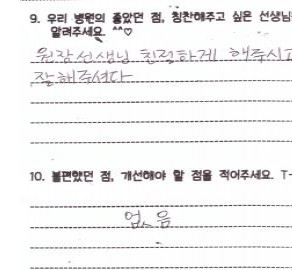 9. 우리 병원의 좋았던 점, 칭찬해주고 싶은 선생님
알려주세요. ^^♡
원장선생님 친절하게 해주시고
잘해주셔다
10. 불편했던 점, 개선해야 할 점을 적어주세요. T-
없음